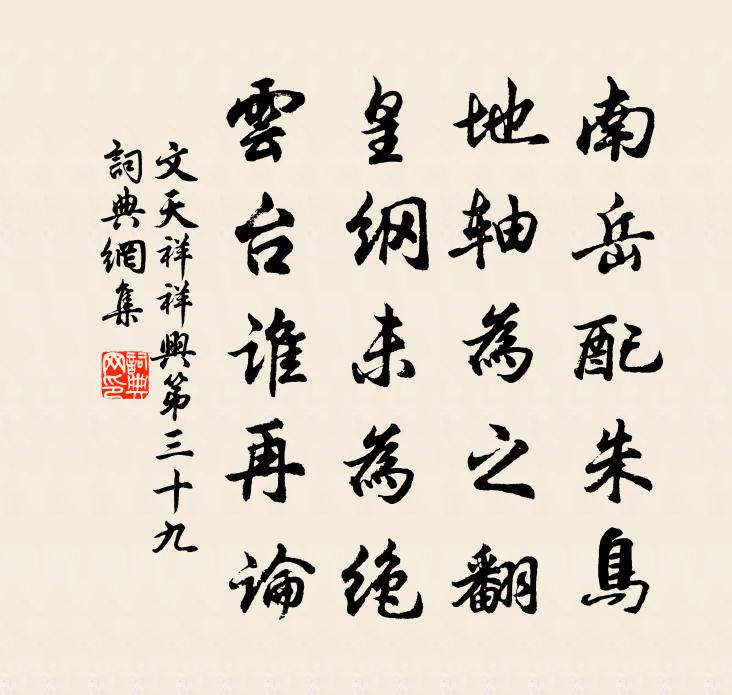 南岳配朱鳥
地轴為之翻
皇纲未為绝
雲台谁再論
文天祥祥興第三十九
詞典網集
詞典網印